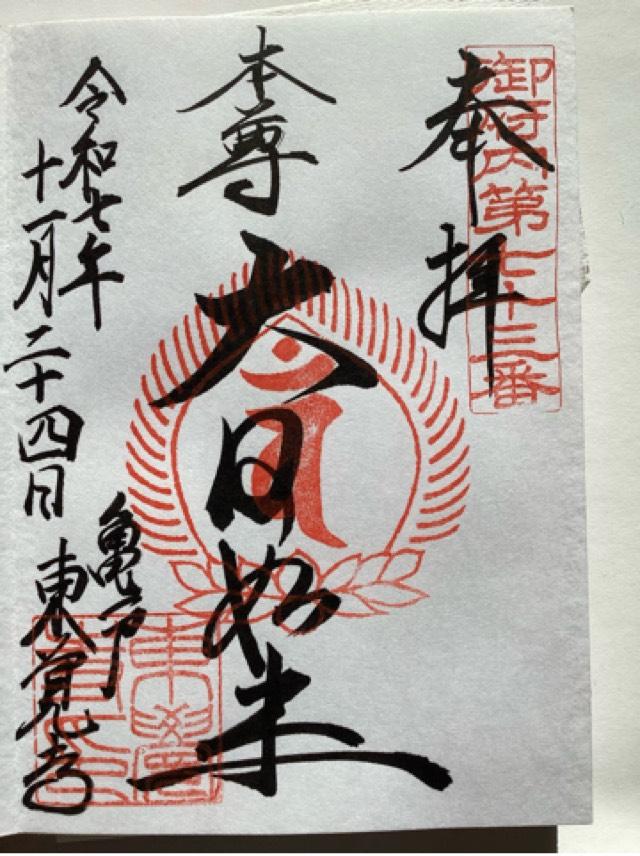 奉拝
御府内第七十三番
本尊
大日如来
令和七年
十一月二十四日
亀戸
東覚寺